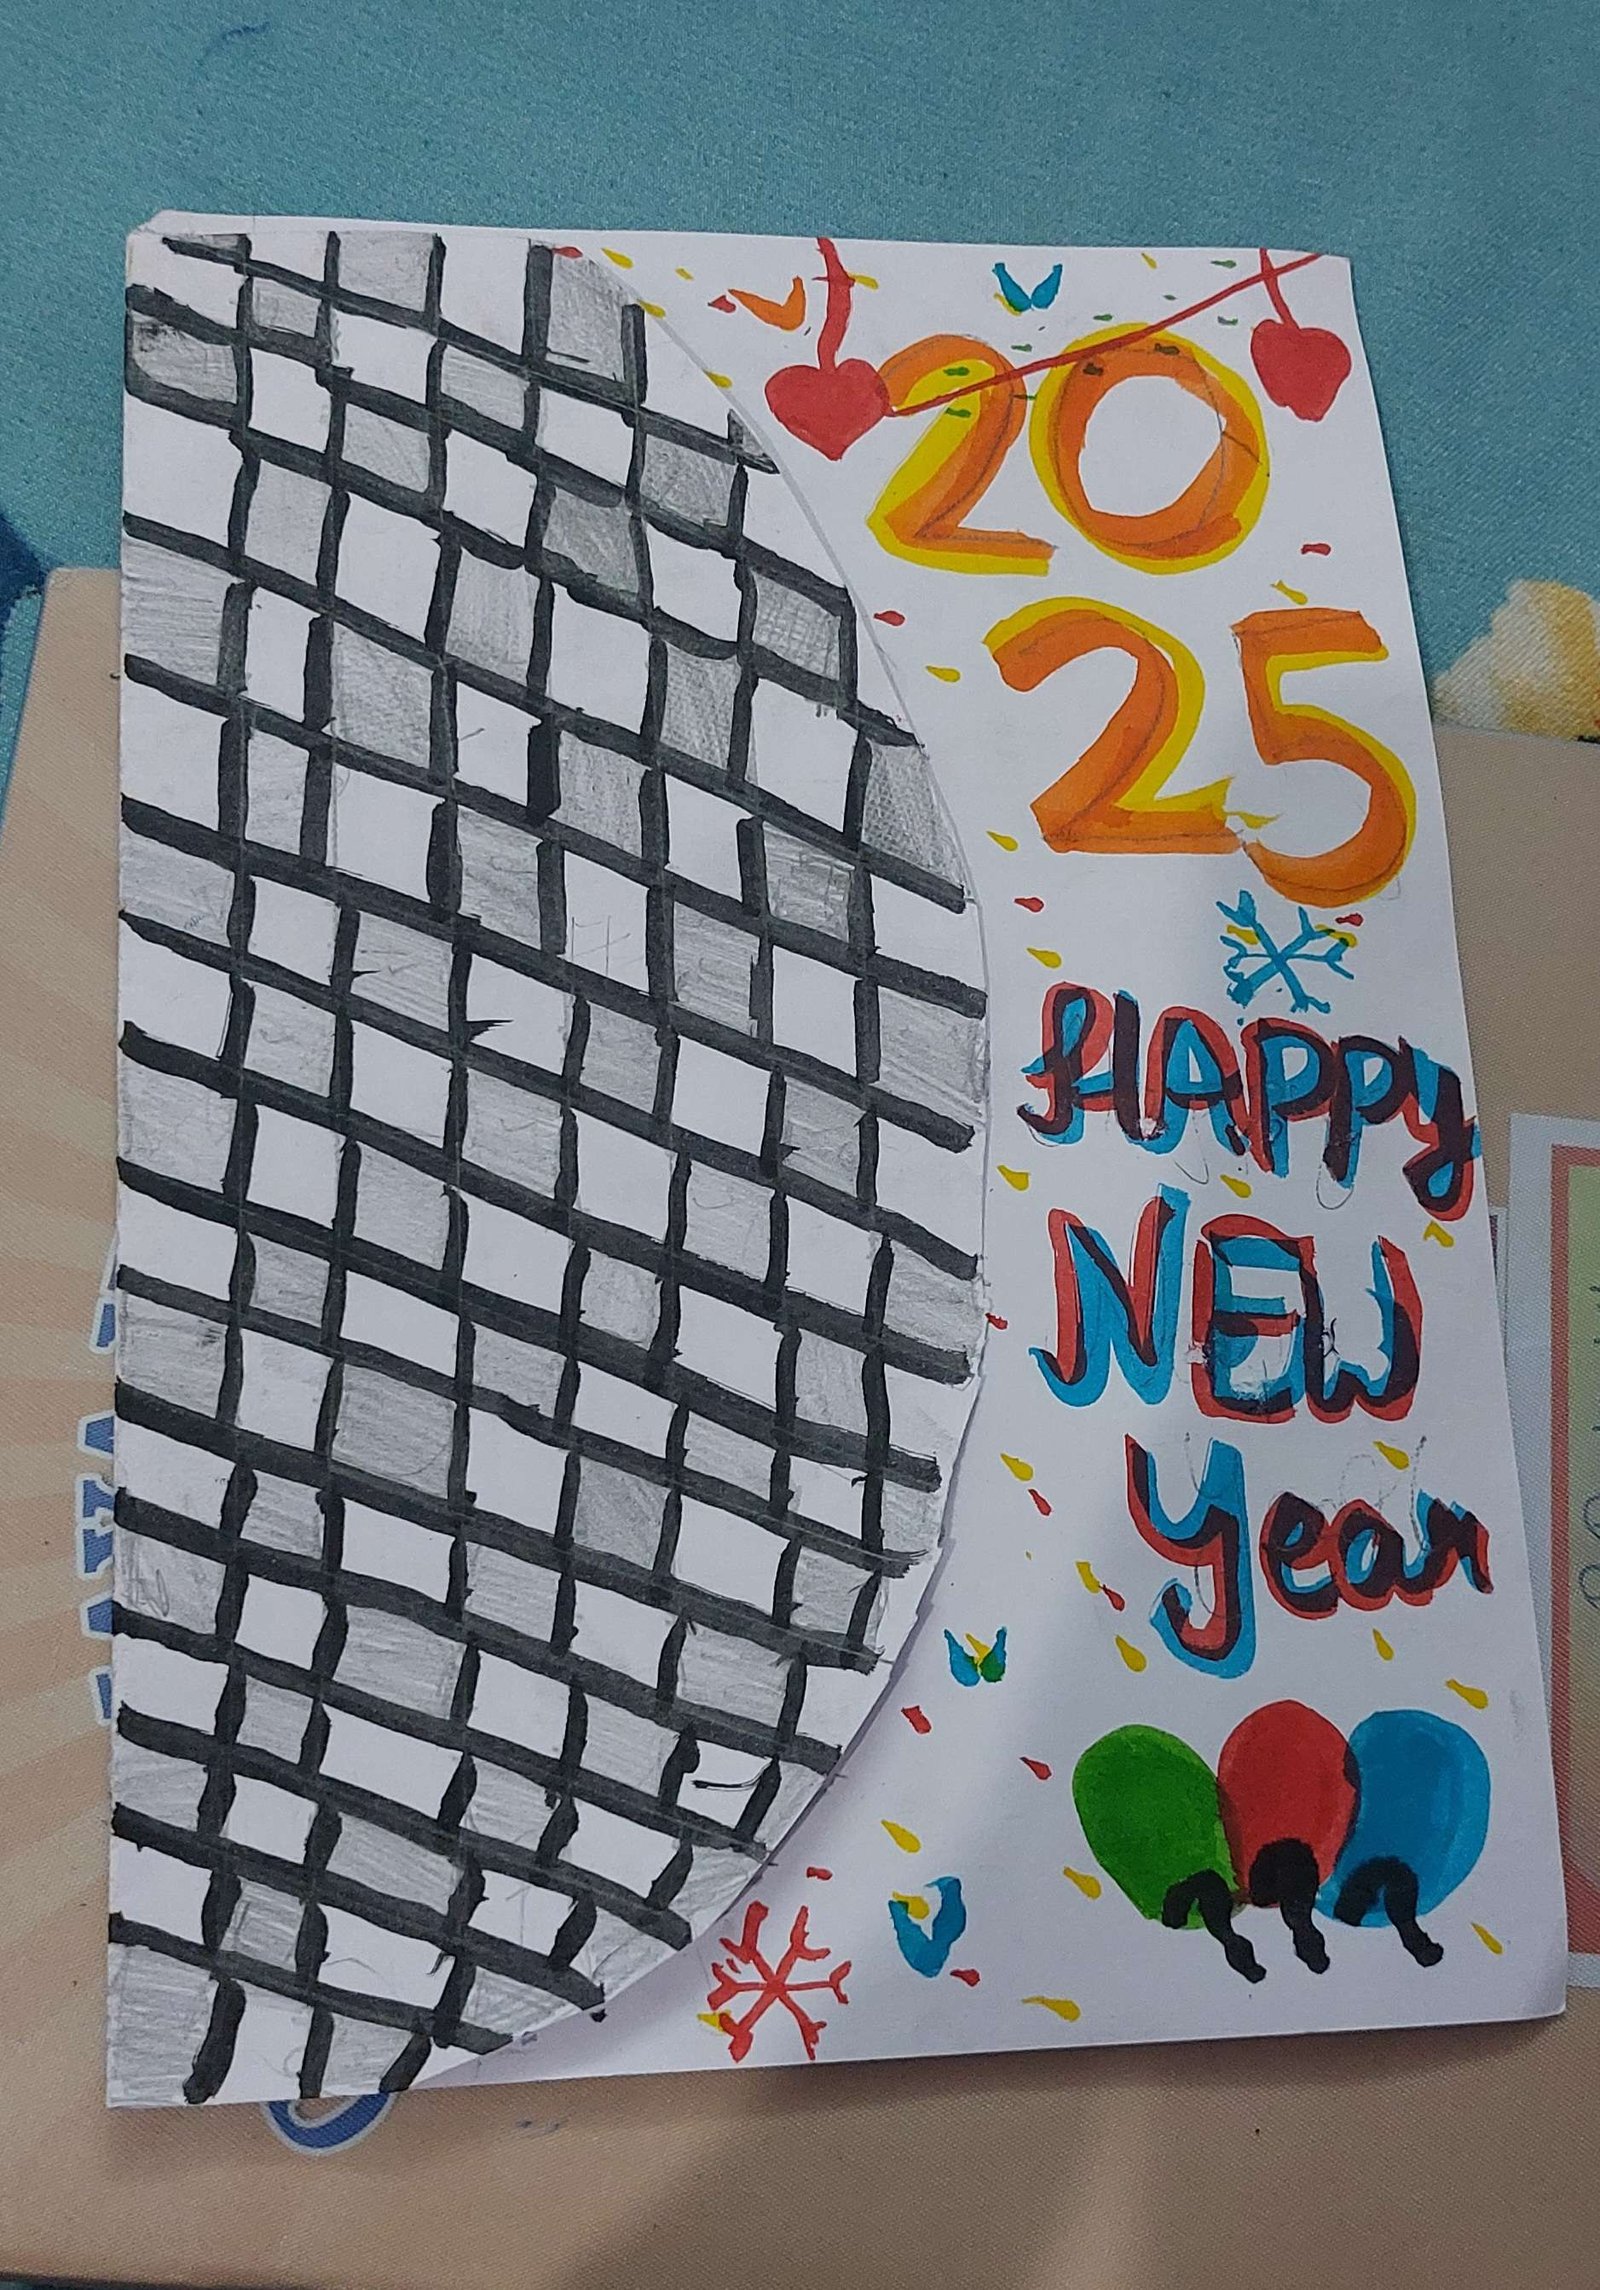 20
25
HAPPY
NEW
Year